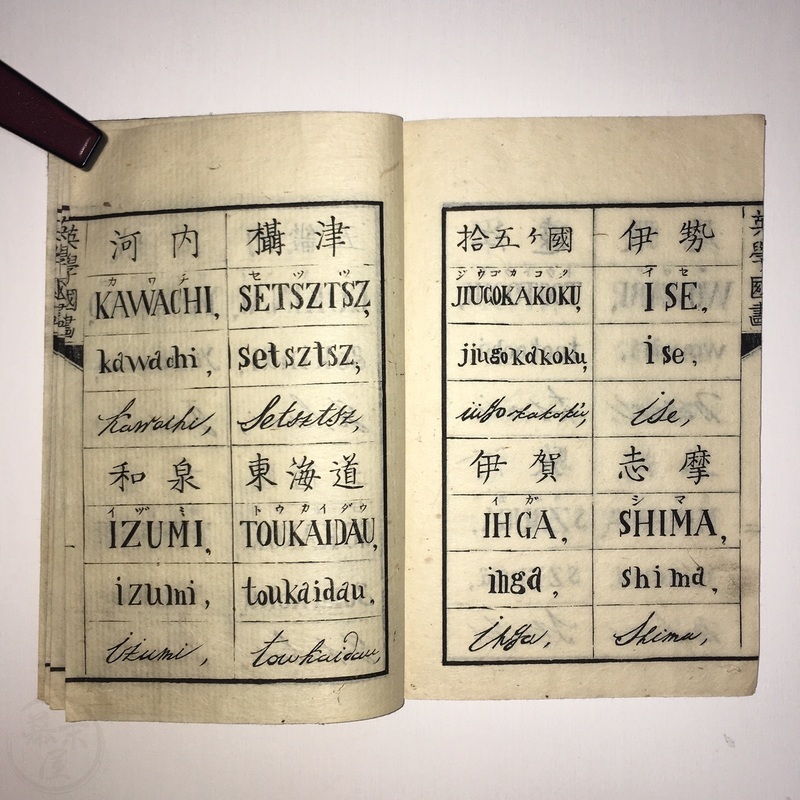 英學國畫
河内
カワチ
KAWACHI,
kawachi,
kawachi,
和泉
イヅミ
IZUMI,
izumi,
izumi,
攝津
セツツ
SETSZTSZ,
setsztsz,
Setsztsz,
東海道
トウカイダウ
TOUKAIDAU,
toukaidau,
toukaidau,
拾五ケ國
ジウゴカコク
JIUGOKAKOKU,
jiugokakoku,
jiugokakoku,
伊賀
イガ
IHGA,
ihga,
ihga,
伊勢
イセ
ISE,
ise,
ise,
志摩
シマ
SHIMA,
shima,
Shima,
英學國畫